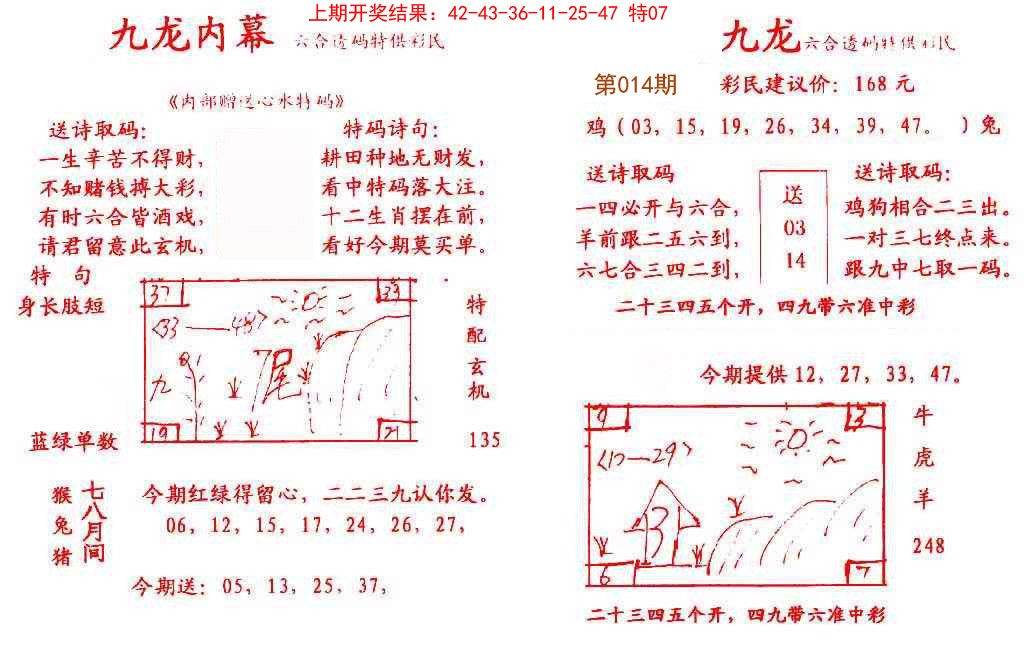 上期开奖结果：42-43-36-11-25-47 特07
九龙内幕 六合透码特供彩民
《内部赠送心水特码》
送诗取码：
一生辛苦不得财，
不知赌钱搏大彩，
有时六合皆酒戏，
请君留意此玄机，
特码诗句：
耕田种地无财发，
看中特码落大注。
十二生肖摆在前，
看好今期莫买单。
特 句
身长肢短
蓝绿单数
37
33
〈33——48〉
九
7尾
19
21
特配玄机
135
猴兔猪
七八月间
今期红绿得留心，二二三九认你发。
06，12，15，17，24，26，27，
今期送：05，13，25，37，
九龙 六合透码特供彩民
第014期
彩民建议价：168 元
鸡（03，15，19，26，34，39，47。 ）兔
送诗取码
一四必开与六合，
羊前跟二五六到，
六七合三四二到，
送
03
14
送诗取码：
鸡狗相合二三出。
一对三七终点来。
跟九中七取一码。
二十三四五个开，四九带六准中彩
今期提供 12，27，33，47。
9
3
〈17—29〉
31
6
7
牛
虎
羊
248
二十三四五个开，四九带六准中彩